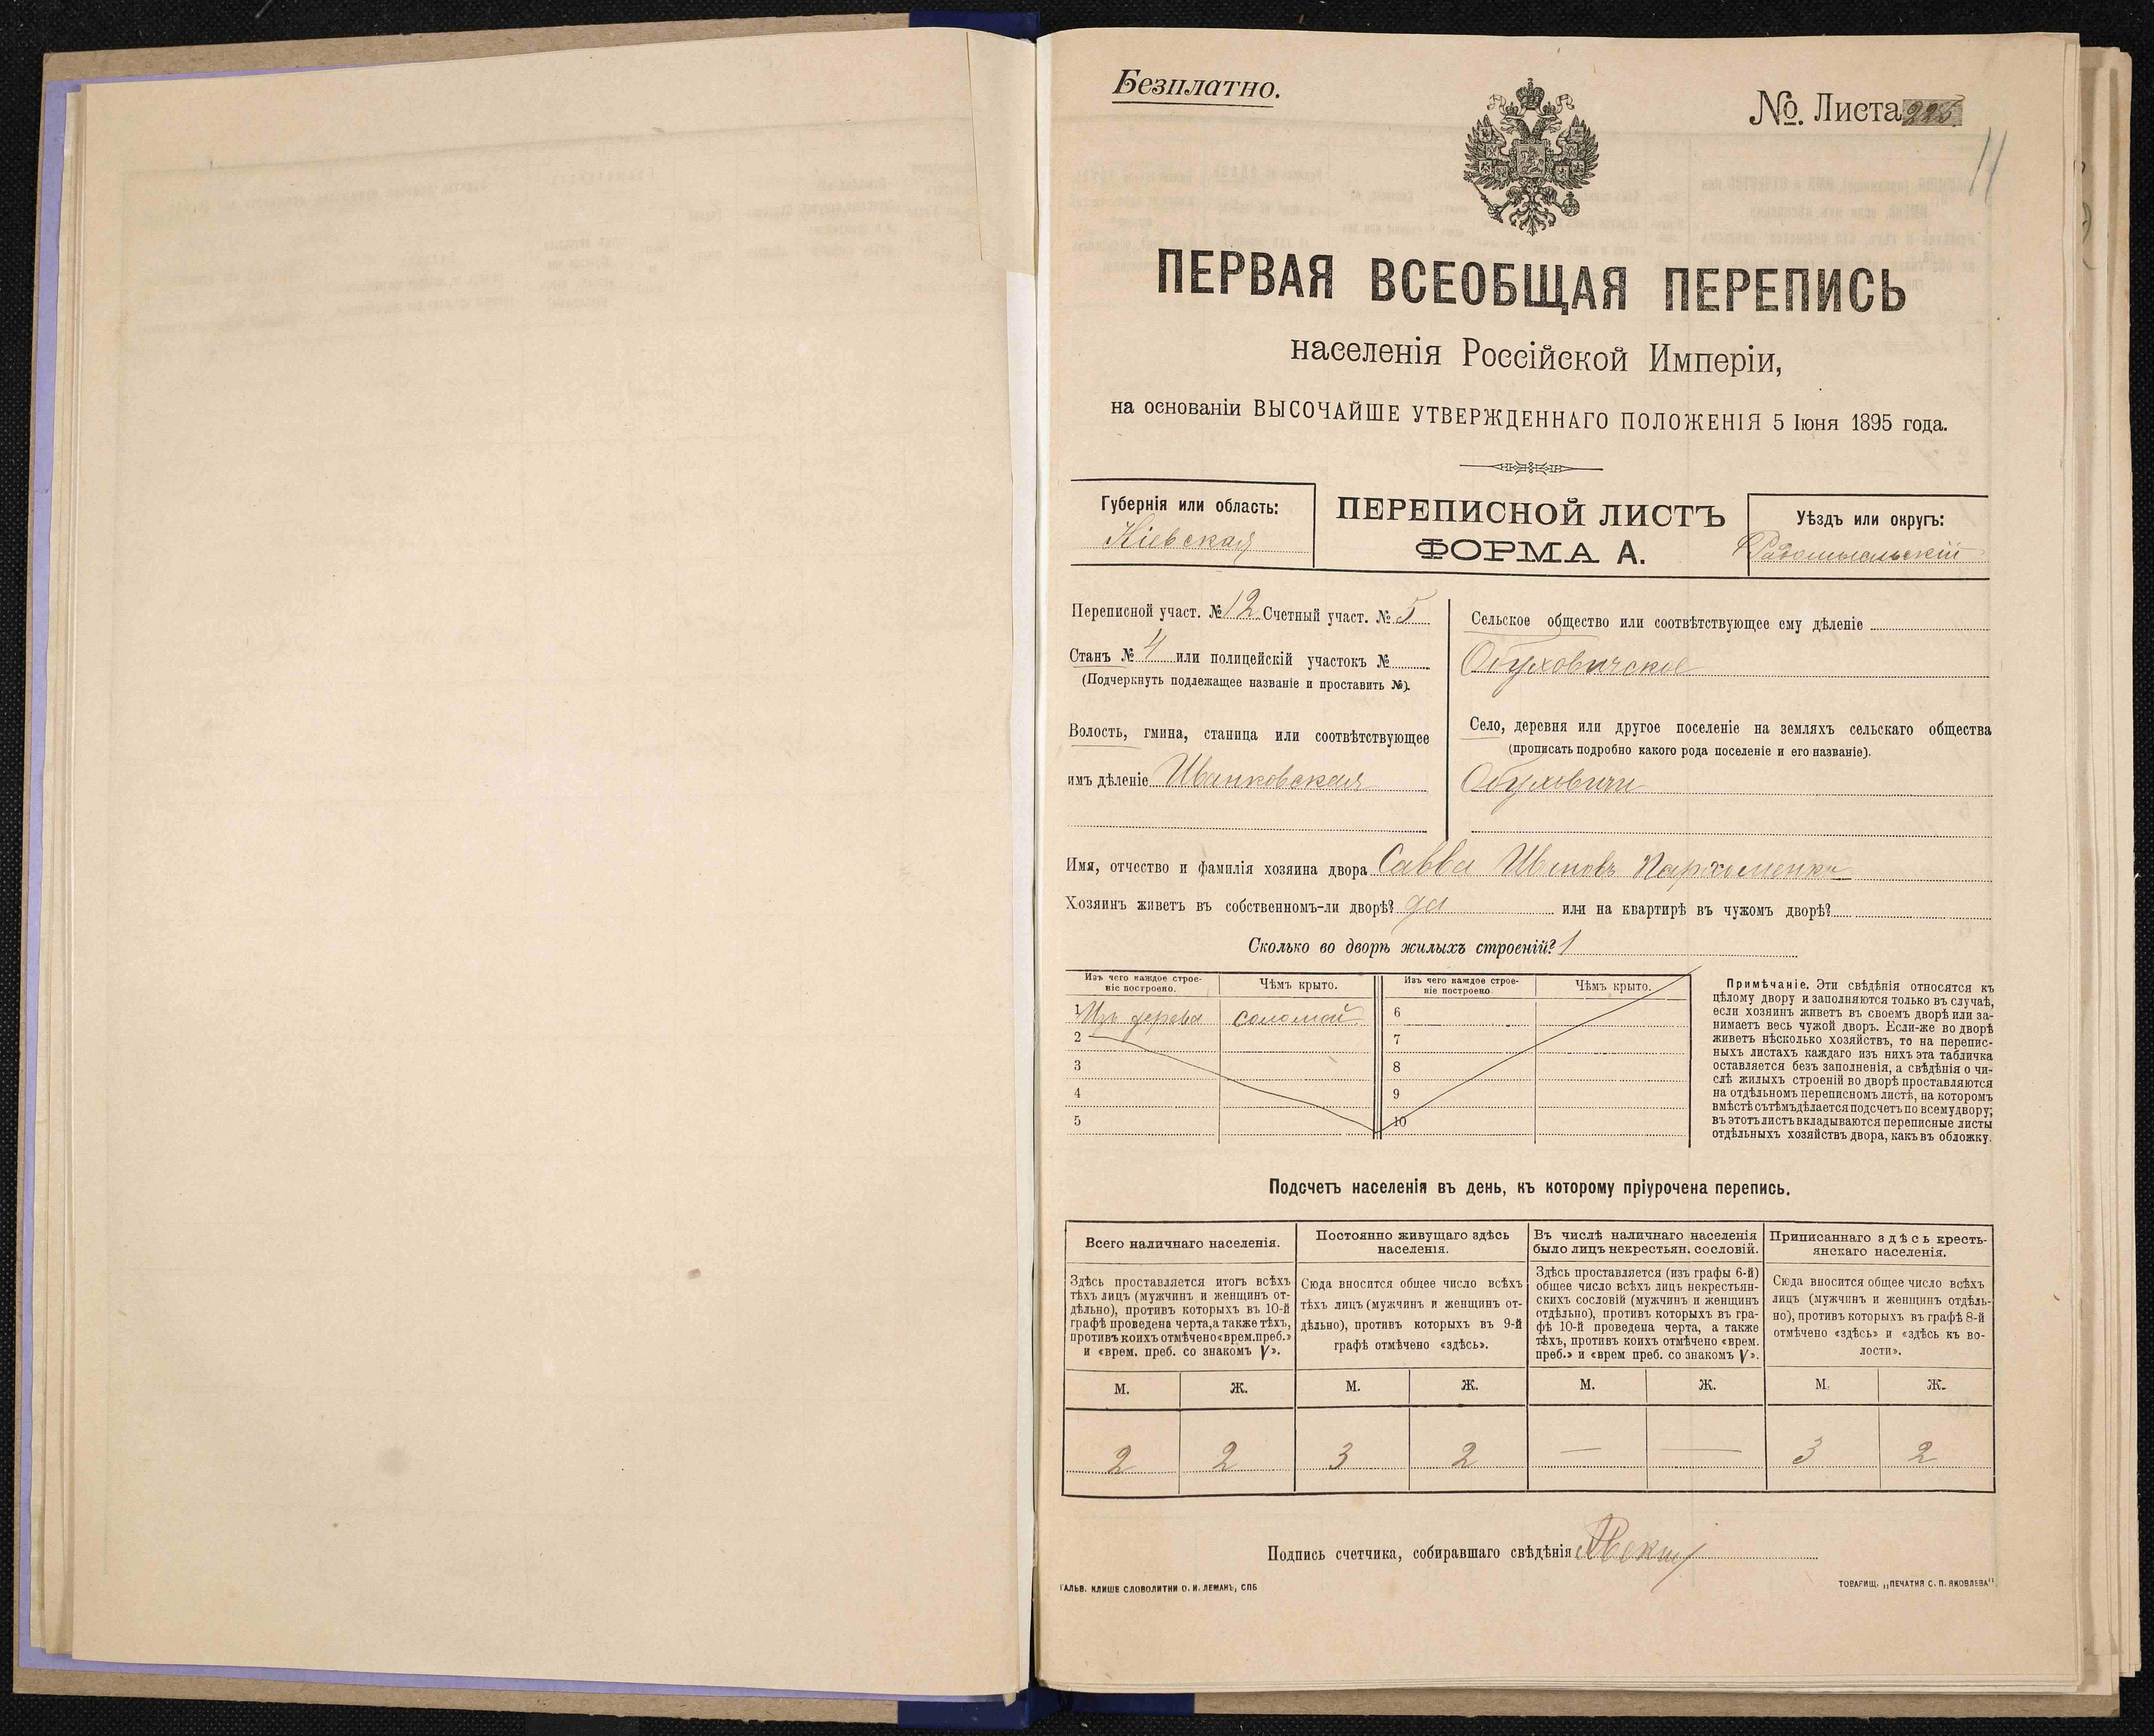 Безплатно.
№. Листа 225
11
ПЕРВАЯ ВСЕОБЩАЯ ПЕРЕПИСЬ
населенія Россійской Имперіи,
на основаніи ВЫСОЧАЙШЕ УТВЕРЖДЕННАГО ПОЛОЖЕНІЯ 5 Іюня 1895 года.
Губернія или область:
Кіевская
ПЕРЕПИСНОЙ ЛИСТЪ
ФОРМА А.
Уѣздъ или округъ:
Радомысльскій
Переписной участ. № 12 Счетный участ. № 5
Станъ № 4 или полицейскій участокъ №
(Подчеркнуть подлежащее названіе и проставить №).
Волость, гмина, станица или соотвѣтствующее
имъ дѣленіе Иванковская
Сельское общество или соотвѣтствующее ему дѣленіе
Обуховичское
Село, деревня или другое поселеніе на земляхъ сельскаго общества
(прописать подробно какого рода поселеніе и его названіе).
Обуховичи
Имя, отчество и фамилія хозяина двора Савва Ивановъ Пархоменко
Хозяинъ живетъ въ собственномъ-ли дворѣ? да или на квартирѣ въ чужомъ дворѣ?
Сколько во дворѣ жилыхъ строеній? 1
Изъ чего каждое строе-
ніе построено.
Чѣмъ крыто.
Изъ чего каждое строе-
ніе построено.
Чѣмъ крыто.
1 Изъ дерева соломой 6
2 7
3 8
4 9
5 10
Примѣчаніе. Эти свѣдѣнія относятся къ
цѣлому двору и заполняются только въ случаѣ,
если хозяинъ живетъ въ своемъ дворѣ или за-
нимаетъ весь чужой дворъ. Если-же во дворѣ
живетъ нѣсколько хозяйствъ, то на перепис-
ныхъ листахъ каждаго изъ нихъ эта табличка
оставляется безъ заполненія, а свѣдѣнія о чи-
слѣ жилыхъ строеній во дворѣ проставляются
на отдѣльномъ переписномъ листѣ, на которомъ
вмѣстѣ съ тѣмъ дѣлается подсчетъ по всему двору;
въ этотъ листъ вкладываются переписные листы
отдѣльныхъ хозяйствъ двора, какъ въ обложку.
Подсчетъ населенія въ день, къ которому пріурочена перепись.
Всего наличнаго населенія.
Постоянно живущаго здѣсь
населенія.
Въ числѣ наличнаго населенія
было лицъ некрестьян. сословій.
Приписаннаго здѣсь кресть-
янскаго населенія.
Здѣсь проставляется итогъ всѣхъ
тѣхъ лицъ (мужчинъ и женщинъ от-
дѣльно), противъ которыхъ въ 10-й
графѣ проведена черта, а также тѣхъ,
противъ коихъ отмѣчено «врем. преб.»
и «врем. преб. со знакомъ V».
Сюда вносится общее число всѣхъ
тѣхъ лицъ (мужчинъ и женщинъ от-
дѣльно), противъ которыхъ въ 9-й
графѣ отмѣчено «здѣсь».
Здѣсь проставляется (изъ графы 6-й)
общее число всѣхъ лицъ некрестьян-
скихъ сословій (мужчинъ и женщинъ
отдѣльно), противъ которыхъ въ гра-
фѣ 10-й проведена черта, а также
тѣхъ, противъ коихъ отмѣчено «врем.
преб.» и «врем преб. со знакомъ V».
Сюда вносится общее число всѣхъ
лицъ (мужчинъ и женщинъ отдѣль-
но), противъ которыхъ въ графѣ 8-й
отмѣчено «здѣсь» и «здѣсь къ во-
лости».
М. Ж. М. Ж. М. Ж. М. Ж.
2 2 3 2 — — 3 2
Подпись счетчика, собиравшаго свѣдѣнія
ГАЛЬВ. КЛИШЕ СЛОВОЛИТНИ О. И. ЛЕМАНЪ, СПБ
ТОВАРИЩ. „ПЕЧАТНЯ С. П. ЯКОВЛЕВА"